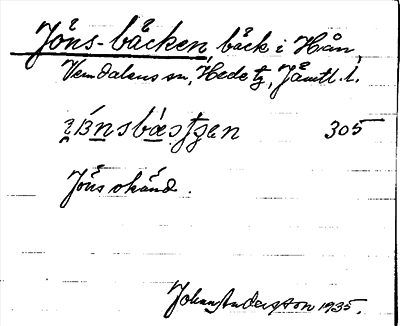 Jöns-bäcken, bäck i Hån,
Vemdalens sn, Hede tg, Jämtl. l.
305
Jöns okänd.
Johan Andersson 1935.